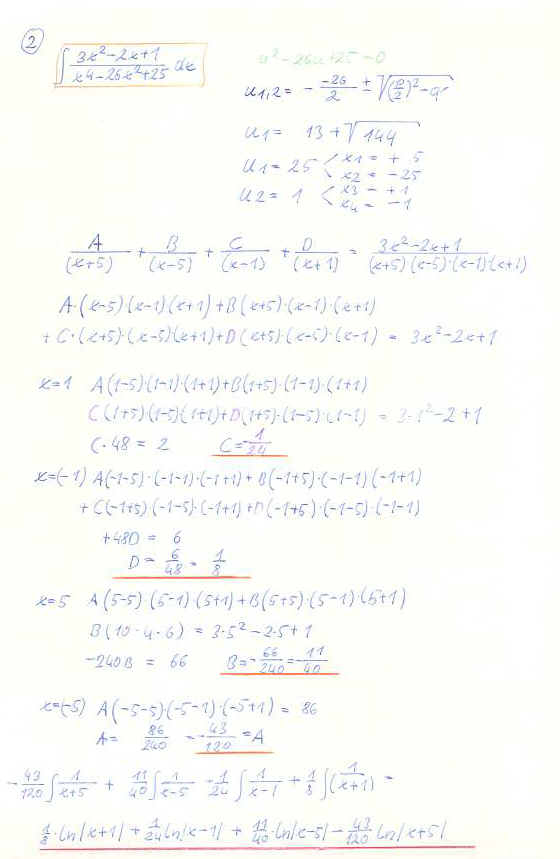 2
∫ (3x²-2x+1)/(x4-26x²+25) dx
u²-26u+25=0
u1,2 = - (-26)/2 ±
u1 = 13+√144
u1 = 25 < x1 = + 5
x2 = -25
u2 = 1 < x3 = +1
x4 = -1
A/(x+5) + B/(x-5) + C/(x-1) + D/(x+1) = (3x²-2x+1)/((x+5)·(x-5)·(x-1)·(x+1))
A·(x-5)(x-1)(x+1)+B(x+5)·(x-1)·(x+1)
+ C·(x+5)·(x-5)(x+1)+D(x+5)·(x-5)·(x-1) = 3x²-2x+1
x=1 A(1-5)·(1-1)·(1+1)+B(1+5)·(1-1)·(1+1)
C(1+5)·(1-5)(1+1)+D(1+5)·(1-5)·(1-1) = 3·1²-2+1
C·48 = 2 C=-1/24
x=(-1) A(-1-5)·(-1-1)·(-1+1)+B(-1+5)·(-1-1)(-1+1)
+C(-1+5)·(-1-5)·(-1+1)+D(-1+5)·(-1-5)·(-1-1)
+48D = 6
D = 6/48 = 1/8
x=5 A(5-5)·(5-1)·(5+1)+B(5+5)·(5-1)·(5+1)
B(10·4·6) = 3·5²-2·5+1
-240B = 66 B=-66/240=-11/40
x=(-5) A(-5-5)·(-5-1)·(-5+1) = 86
A= 86/240 = -43/120 = A
-43/120 ∫ 1/(x+5) + 11/40 ∫ 1/(x-5) - 1/24 ∫ 1/(x-1) + 1/8 ∫ 1/(x+1) =
1/8·ln|x+1| + 1/24 ln|x-1| + 11/40·ln|x-5| - 43/120 ln|x+5|